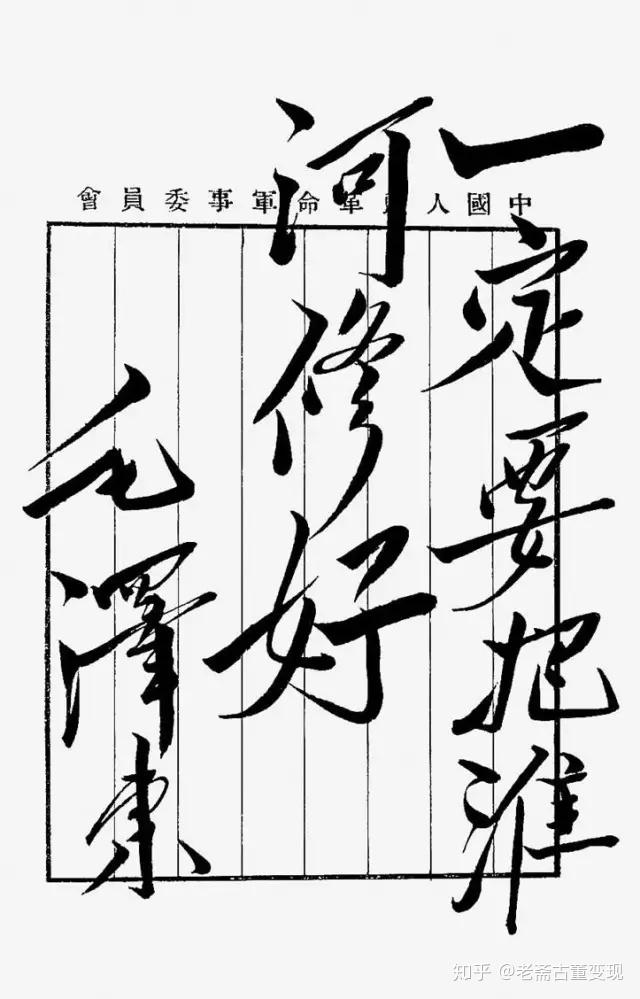 中國人民革命軍事委員會
一定要把淮
河修好
毛澤東
知乎 @老斋古董变现